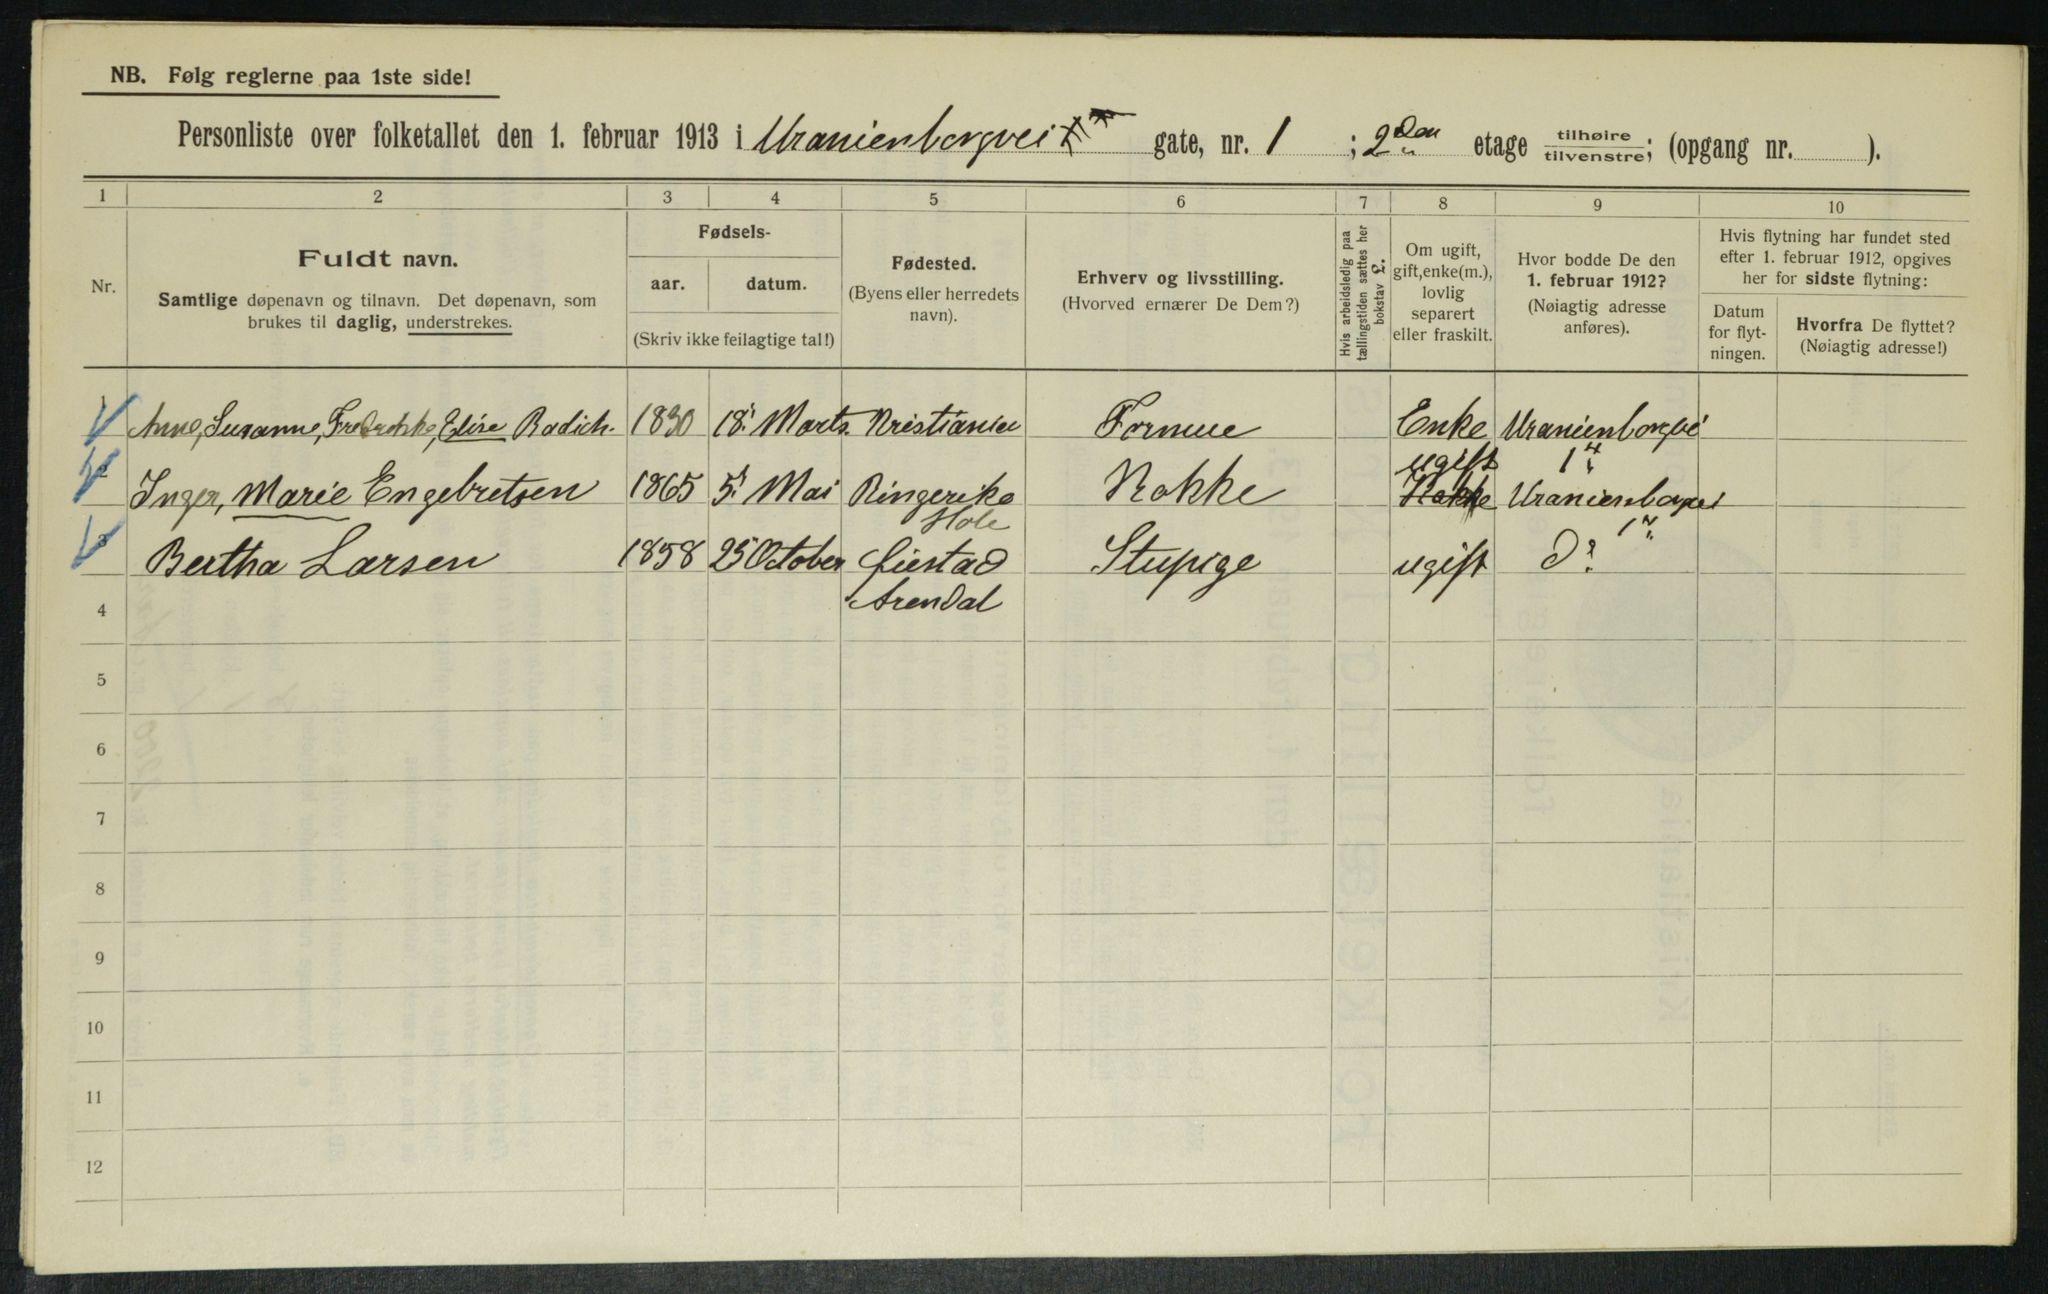 NB. Følg reglerne paa 1ste side!
Personliste over folketallet den 1. februar 1913 i Uranienborgvei gate, nr. 1 ; 2den etage tilhøire tilvenstre; (opgang nr. ).
1 2 3 4 5 6 7 8 9 10
Nr.
Fuldt navn.
Samtlige døpenavn og tilnavn. Det døpenavn, som
brukes til daglig, understrekes.
Fødsels-
aar. datum.
(Skriv ikke feilagtige tal!)
Fødested.
(Byens eller herredets
navn).
Erhverv og livsstilling.
(Hvorved ernærer De Dem?)
Hvis arbeidsledig paa
tællingstiden sættes her
bokstav L.
Om ugift,
gift, enke(m.),
lovlig
separert
eller fraskilt.
Hvor bodde De den
1. februar 1912?
(Nøiagtig adresse
anføres).
Hvis flytning har fundet sted
efter 1. februar 1912, opgives
her for sidste flytning:
Datum
for flyt-
ningen.
Hvorfra De flyttet?
(Nøiagtig adresse!)
1 Anne, Susanne, Fredrekke, Elise Radich. 1830 18. Marts. Kristiania Formue Enke Uranienborgvei
1
2 Inger, Marie Engebretsen 1865 5. Mai Ringerike Kokke ugift Kokke Uranienborgvei
Hole 1
3 Bertha Larsen 1858 25 October Øiestad Stupige ugift do
4 Arendal
5
6
7
8
9
10
11
12